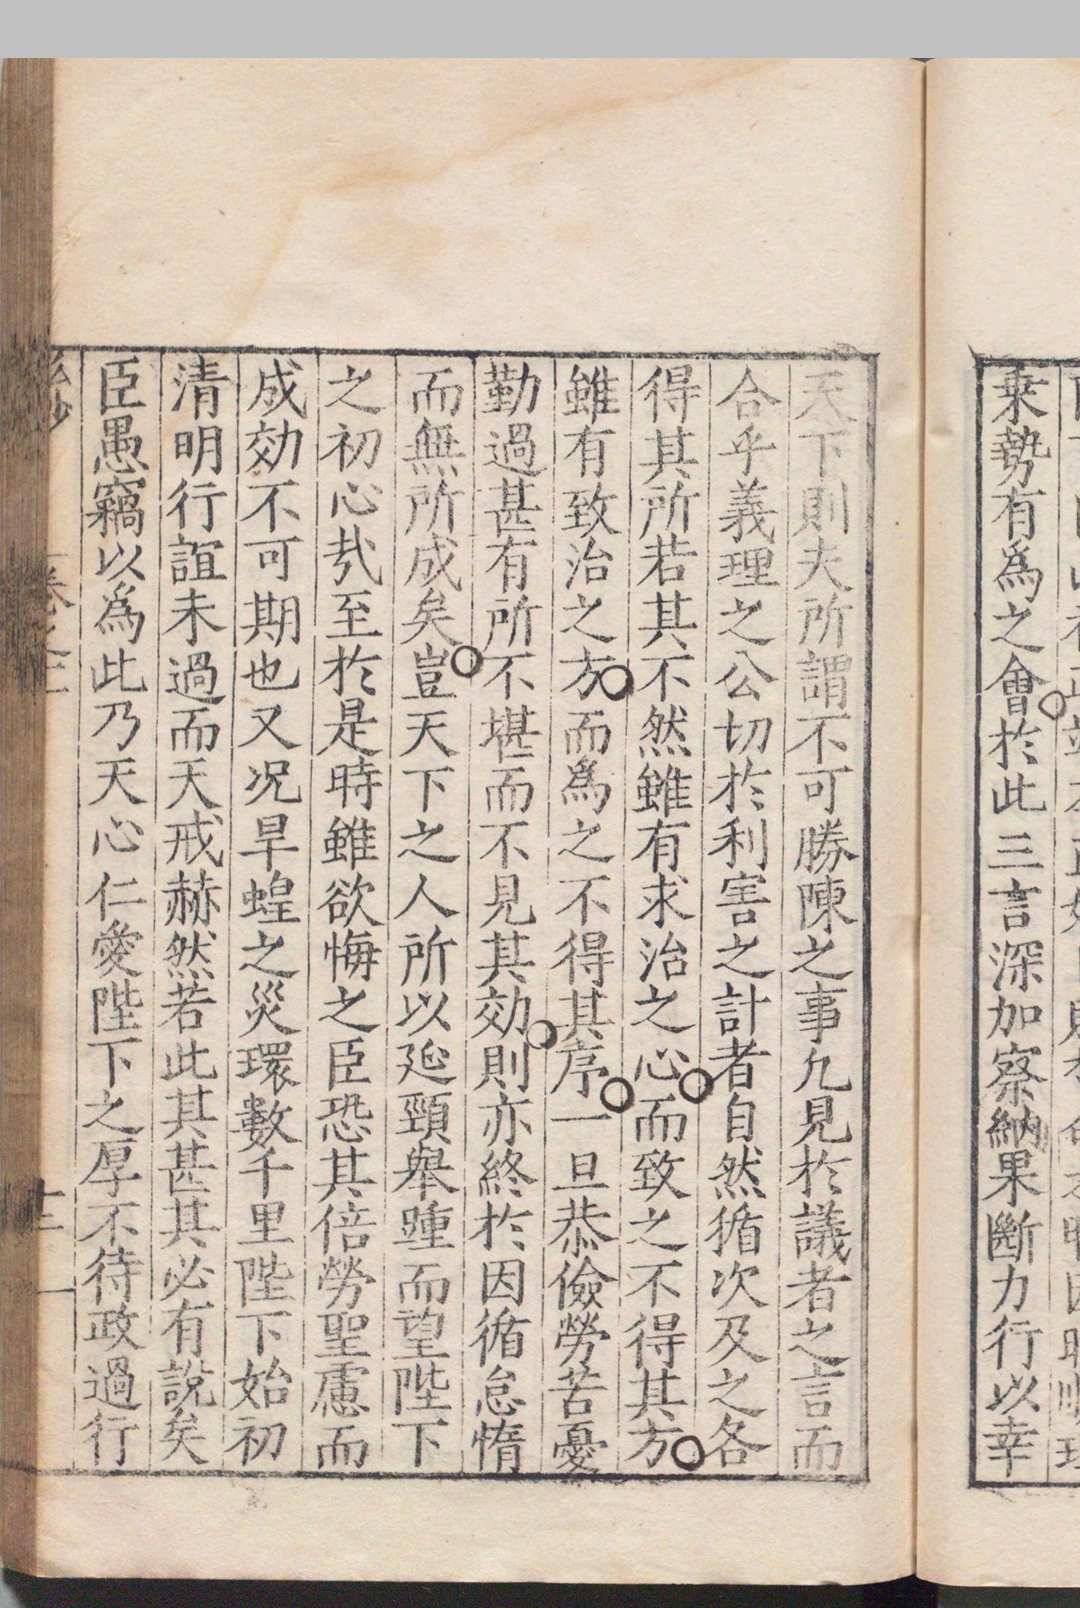 乗勢有為之會於此三言深加察納果斷力行以幸
天下則夫所謂不可勝陳之事凡見於議者之言而
合乎義理之公切於利害之計者自然循次及之各
得其所若其不然雖有求治之心而致之不得其方
雖有致治之方而為之不得其序一旦恭儉勞苦憂
勤過甚有所不堪而不見其効則亦終於因循怠惰
而無所成矣豈天下之人所以延頸舉踵而望陛下
之初心㢤至於是時雖欲悔之臣恐其倍勞聖慮而
成効不可期也又况旱蝗之災環數千里陛下始初
清明行誼未過而天戒赫然若此其甚其必有說矣
臣愚竊以為此乃天心仁愛陛下之厚不待政過行
卷之三
十三